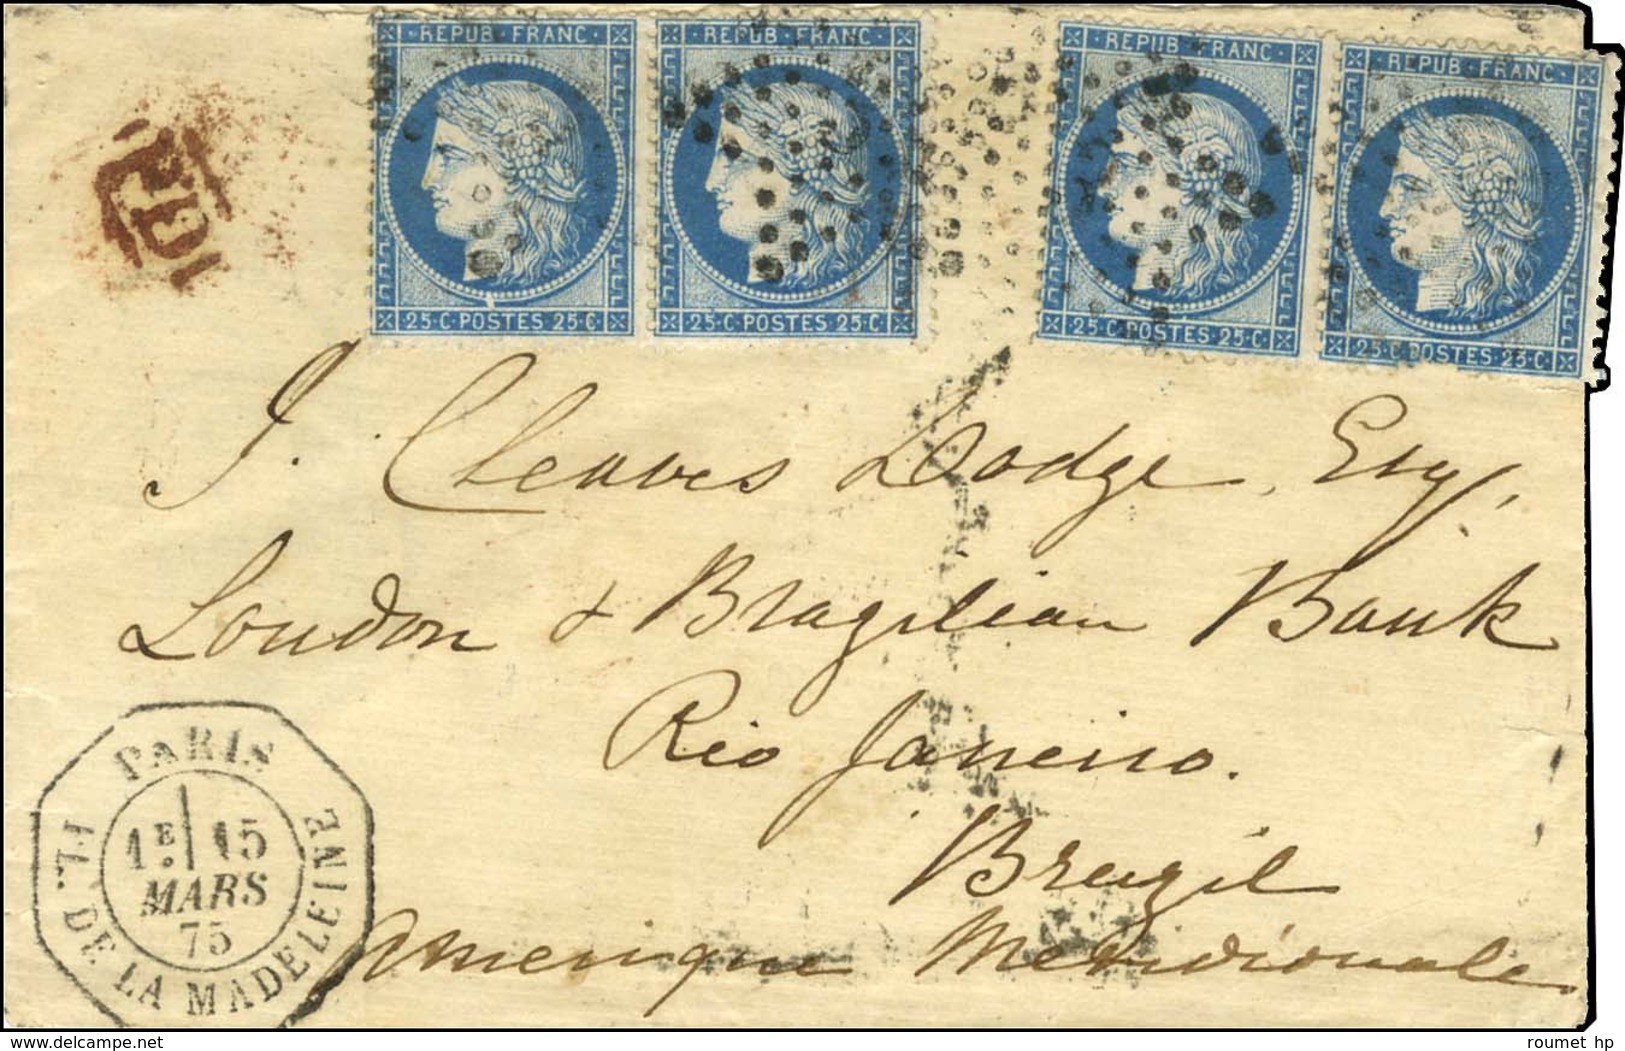 REPUB FRANC REPUB FRANC REPUB FRANC REPUB FRANC
25·C·POSTES 25·C 25·C·POSTES 25·C 25·C·POSTES 25·C 25·C·POSTES 25·C
PD
J. Cleaves Lodge, Esq,
London & Brazilian Bank
Rio Janeiro.
Brezil
Amerique Meridionale
PARIS
1E 15
MARS
75
PL. DE LA MADELEINE
www.delcampe.net
roumet hp